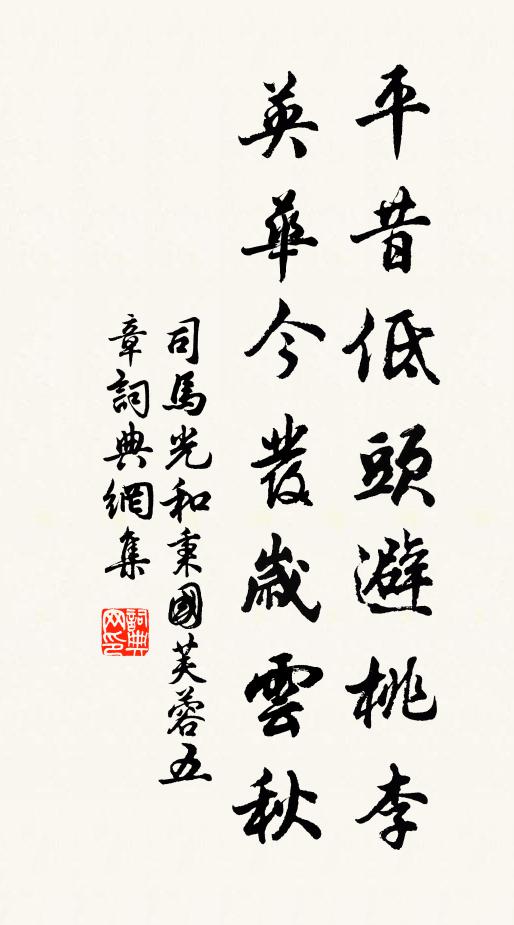 平昔低頭避桃李
英華今發歲雲秋
司馬光和秉國芙蓉五
章詞典網集
詞典
网印